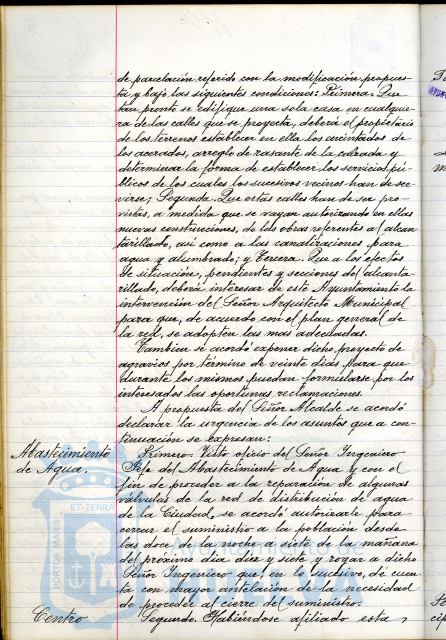 de parcelación referido con la modificación propues-
ta y bajo las siguientes condiciones: Primera. Que
tan pronto se edifique una sola casa en cualquie-
ra de las calles que se proyecta, deberá el propietario
de los terrenos establecer en ella los encintados de
los acerados, arreglo de rasante de la calzada y
determinar la forma de establecer los servicios pú-
blicos de los cuales los sucesivos vecinos han de ser-
virse; Segunda. Que estas calles han de ser pro-
vistas, a medida que se vayan autorizando en ellas
nuevas construcciones, de las obras referentes al alcan
tarillado, así como a las canalizaciones para
agua y alumbrado; y Tercera. Que a los efectos
de situación, pendientes y secciones del alcanta-
rillado, deberá interesar de este Ayuntamiento la
intervención del Señor Arquitecto Municipal
para que, de acuerdo con el plan general de
la red, se adopten las mas adecuadas.
Tambien se acordó exponer dicho proyecto de
agravios por término de veinte dias para que
durante los mismos puedan formularse por los
interesados las oportunas reclamaciones.
A propuesta del Señor Alcalde se acordó
declarar la urgencia de los asuntos que a con-
tinuación se expresan:
Abastecimiento
de Agua.
Primero. Visto oficio del Señor Ingeniero
Jefe del Abastecimiento de Agua y con el
fin de proceder a la reparación de algunas
válvulas de la red de distribución de agua
de la Ciudad, se acordó autorizarle para
cerrar el suministro a la población desde
las doce de la noche a siete de la mañana
del próximo dia diez y siete y rogar a dicho
Señor Ingeniero que, en lo sucesivo, dé cuen
ta con mayor antelación de la necesidad
de proceder al cierre del suministro.
Centro
Segundo. Habiéndose afiliado esta
PORTUS MARIS
ET TERRA
Ayuntamiento de